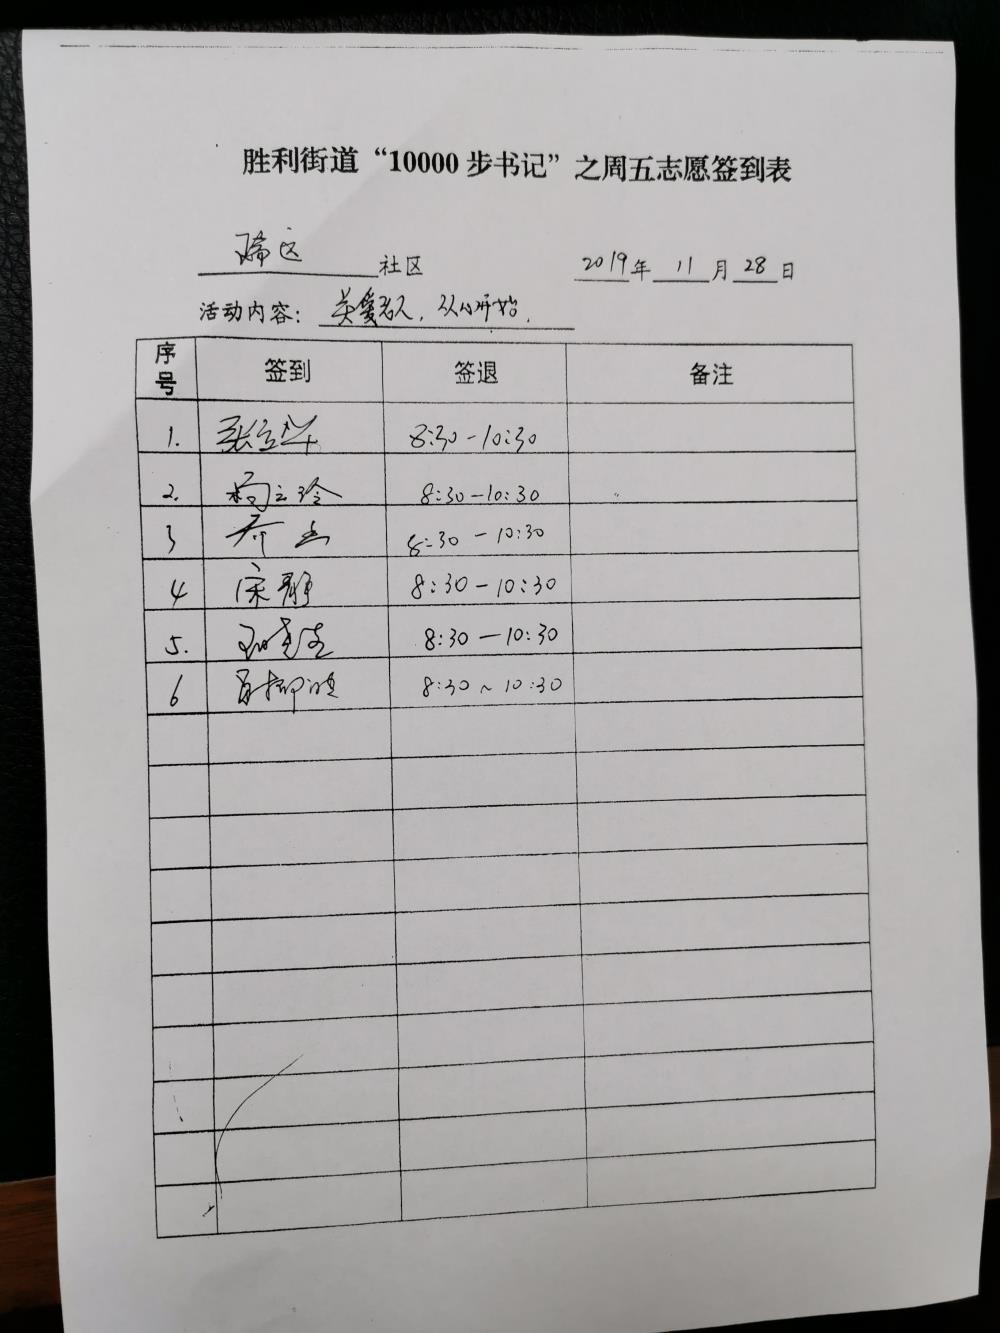 胜利街道“10000步书记”之周五志愿签到表
社区 2019年11月28日
活动内容：关爱老人，从心开始.
序号 签到 签退 备注
1. 张立华 8:30-10:30
2. 杨立玲 8:30-10:30
3 乔 8:30-10:30
4 宋静 8:30-10:30
5. 8:30-10:30
6 8:30~10:30